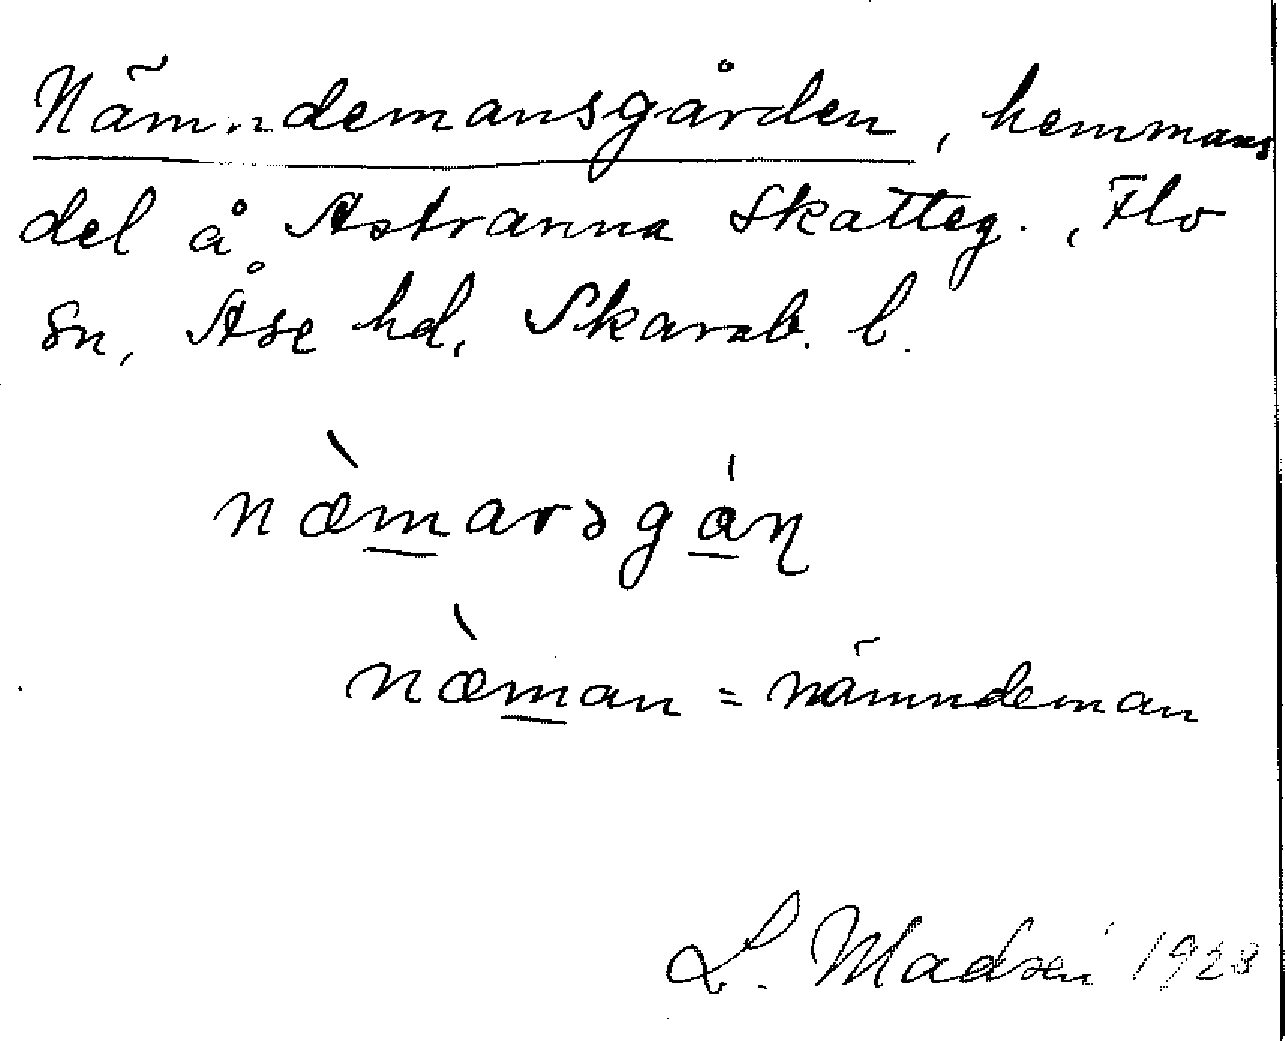 Nämndemansgården, hemmans
del å Astranna Skatteg., Flo
sn, Åse hd, Skarab. l.
næ̀marsgáɳ
næ̀man = nämndeman
L. Madsén 1928